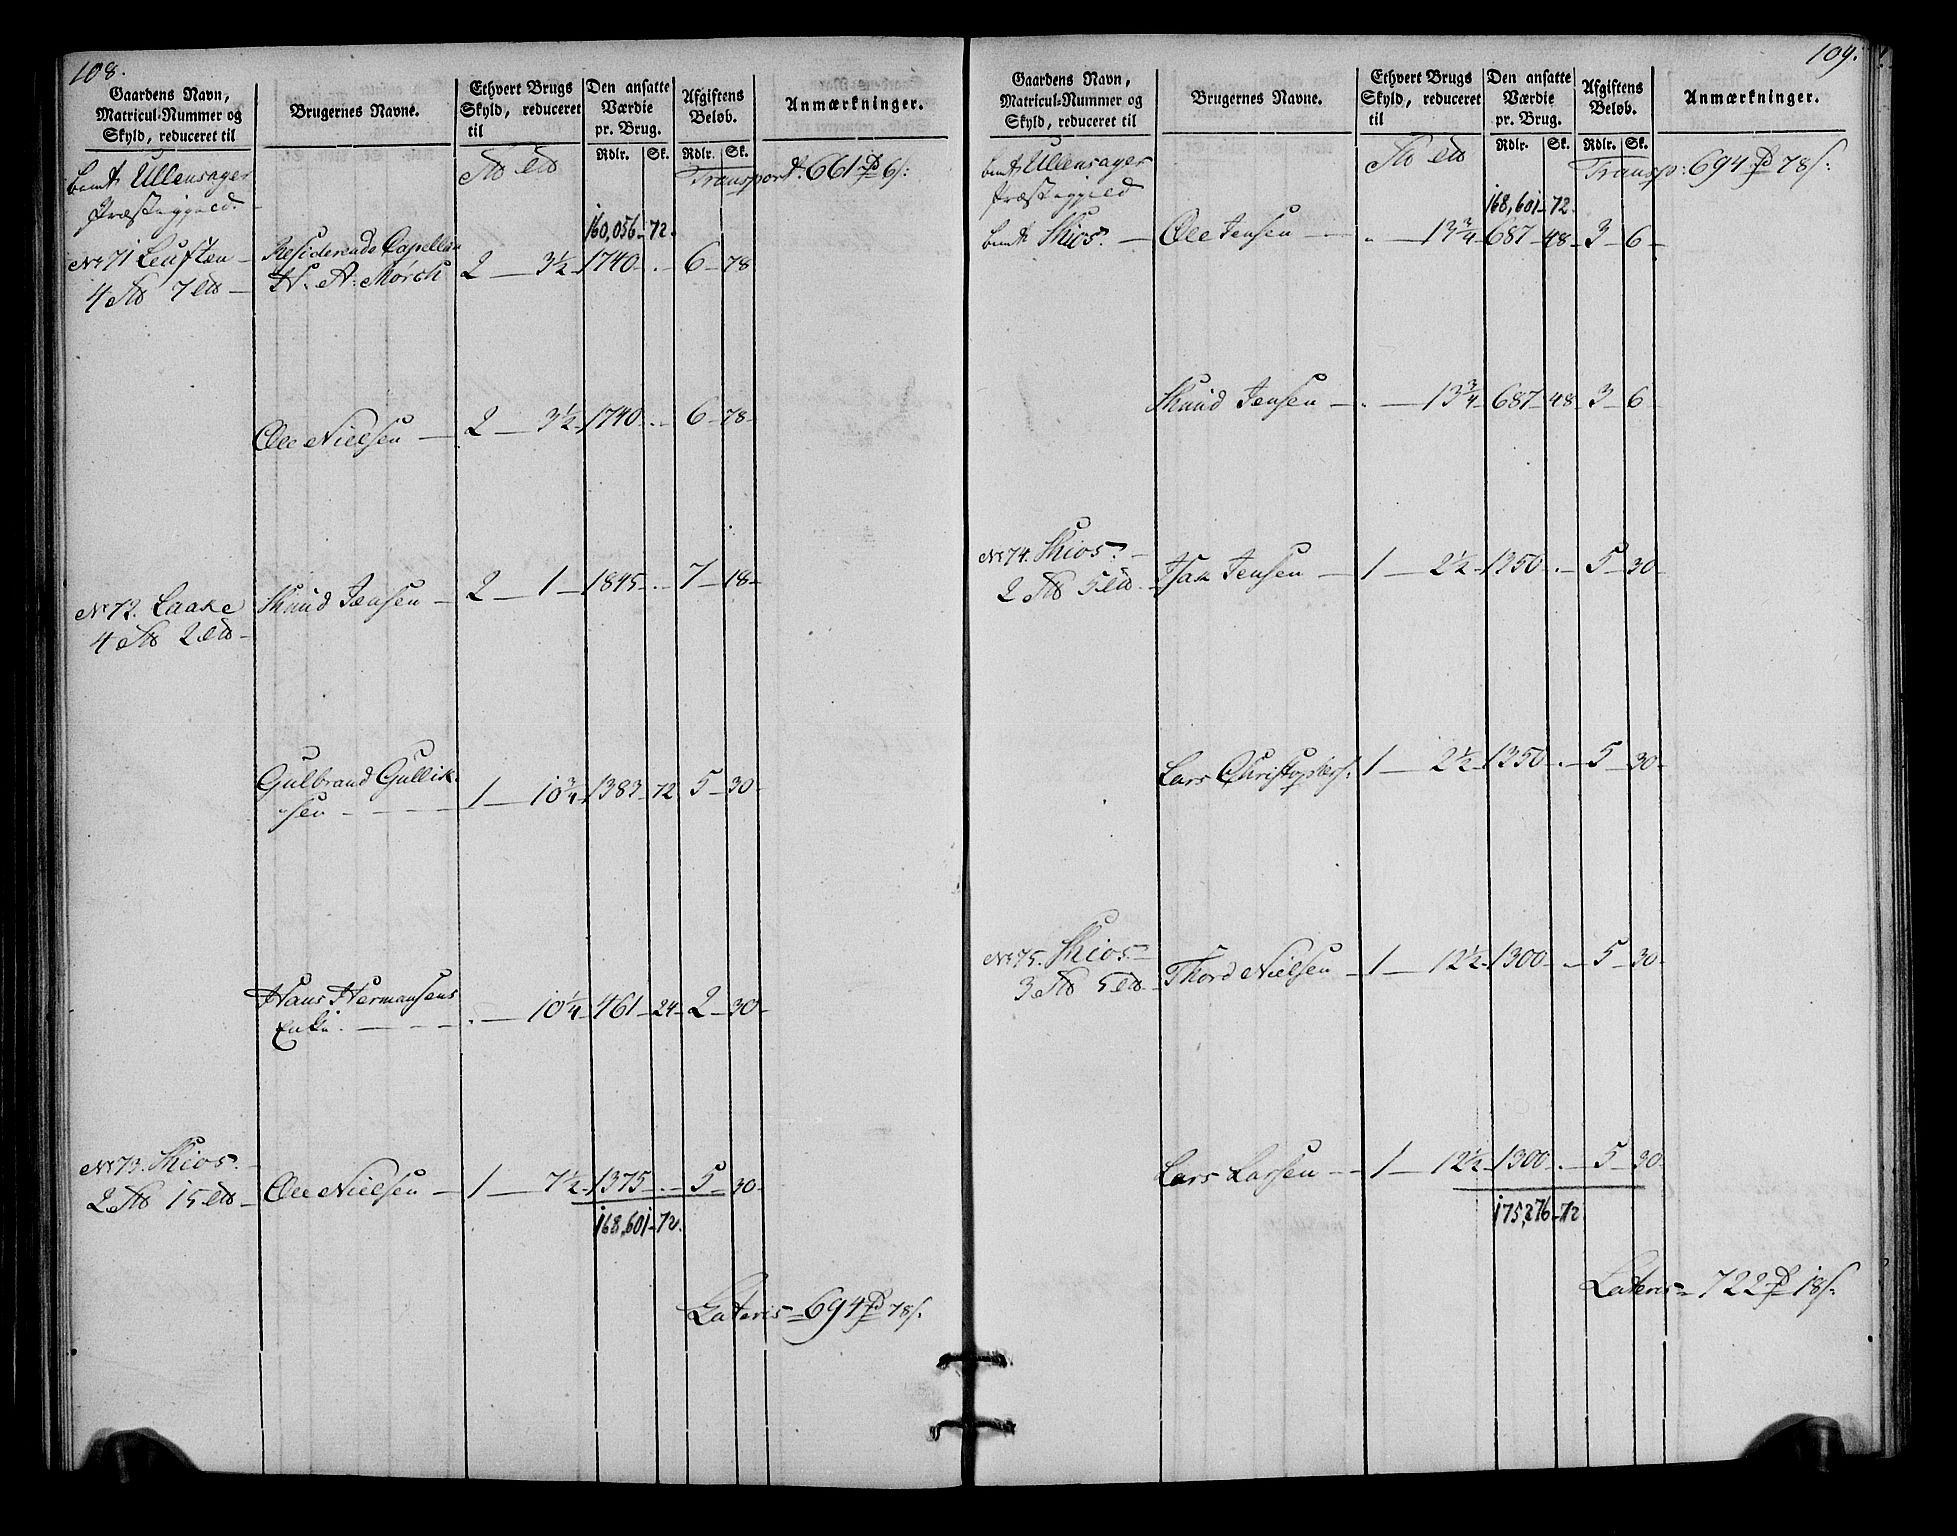 108.
Gaardens Navn, Matricul-Nummer og Skyld, reduceret til | Brugernes Navne. | Ethvert Brugs Skyld, reduceret til | Den ansatte Værdie pr. Brug. | Afgiftens Beløb. | Anmærkninger.
Rdlr. Sk. Rdlr. Sk.
Ullensager
Præstegjeld. Transport. 661 6
160,056 - 72.
No 71 Leuften Residerende Capellan
4 7 H. A: Mørch 2 - 3½ - 1740 - . - 6 - 78
Ole Nielsen 2 - 3½ - 1740 - . - 6 - 78 -
No 72. Laake Knud Jensen 2 - 1 - 1845 - . - 7 - 18 -
4 2
Gulbrand Gullik-
sen 1 - 10¾ - 1383 - 72 5 - 30 -
Hans Hermansens
Enke . - 10¼ - 461 - 24 - 2 - 30 -
No 73. Skios.
2 15 Ole Nielsen 1 - 7½ - 1375 - . - 5 - 30 -
168,601 - 72.
Lateris = 694 78
109.
Gaardens Navn, Matricul-Nummer og Skyld, reduceret til | Brugernes Navne. | Ethvert Brugs Skyld, reduceret til | Den ansatte Værdie pr. Brug. | Afgiftens Beløb. | Anmærkninger.
Rdlr. Sk. Rdlr. Sk.
Ullensager
Præstegjeld Transp: 694 78
168,601 - 72.
Skios. Ole Jensen . - 13¾ - 687 - 48 - 3 - 6 -
Knud Jensen . - 13¾ - 687 - 48 - 3 - 6 -
No 74. Skios. Isak Jensen 1 - 2½ - 1350 - . - 5 - 30 -
2 5
Lars Christophers. 1 - 2½ - 1350 - . - 5 - 30 -
No 75. Skios Thord Nielsen 1 - 12½ - 1300 - . - 5 - 30 -
3 5
Lars Larsen 1 - 12½ - 1300 - . - 5 - 30 -
175,276 - 72
Lateris = 722 18